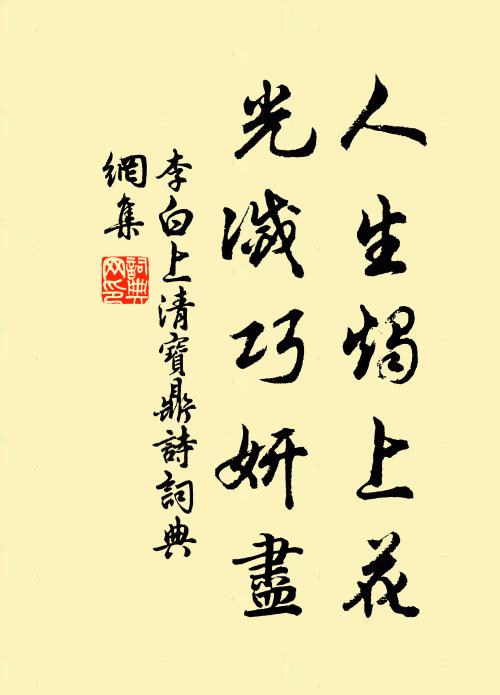 人生燭上花
光滅巧妍盡
李白上清寶鼎詩詞典
網集
詞典網印